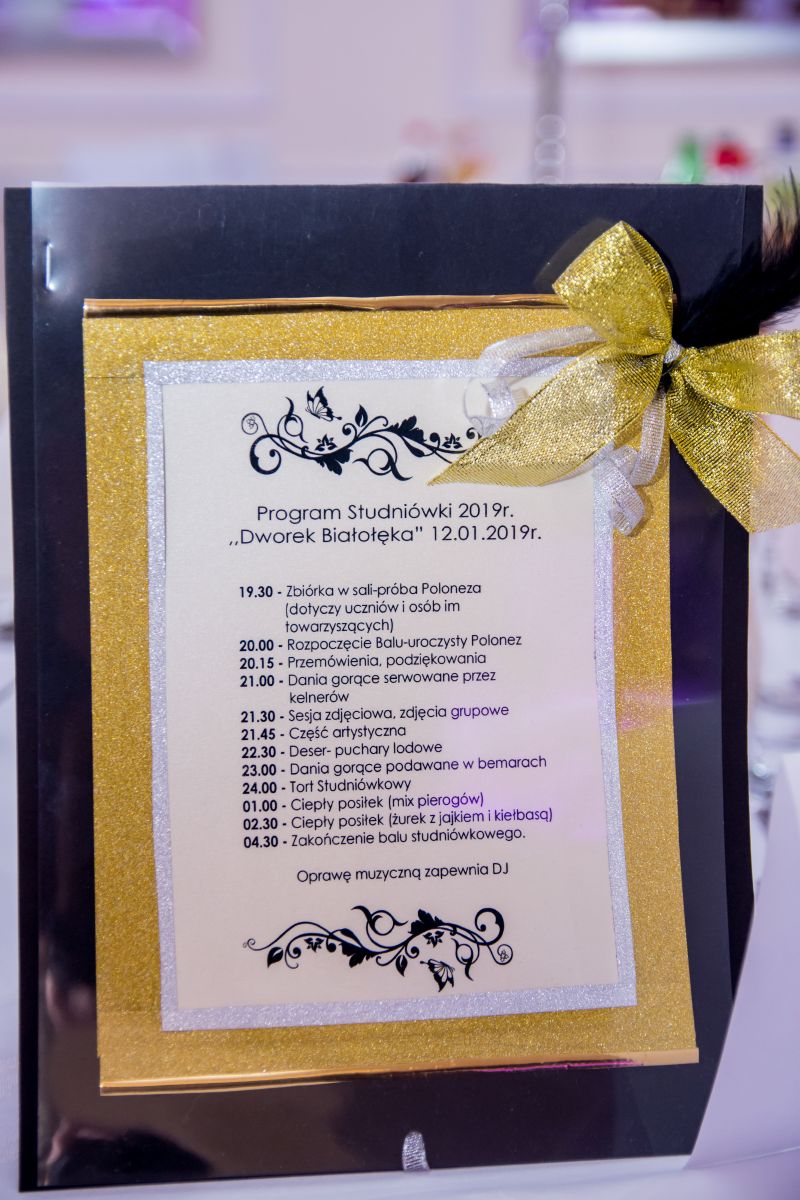 Program Studniówki 2019r.
,,Dworek Białołęka" 12.01.2019r.
19.30 - Zbiórka w sali-próba Poloneza
(dotyczy uczniów i osób im
towarzyszących)
20.00 - Rozpoczęcie Balu-uroczysty Polonez
20.15 - Przemówienia, podziękowania
21.00 - Dania gorące serwowane przez
kelnerów
21.30 - Sesja zdjęciowa, zdjęcia grupowe
21.45 - Część artystyczna
22.30 - Deser- puchary lodowe
23.00 - Dania gorące podawane w bemarach
24.00 - Tort Studniówkowy
01.00 - Ciepły posiłek (mix pierogów)
02.30 - Ciepły posiłek (żurek z jajkiem i kiełbasą)
04.30 - Zakończenie balu studniówkowego.
Oprawę muzyczną zapewnia DJ